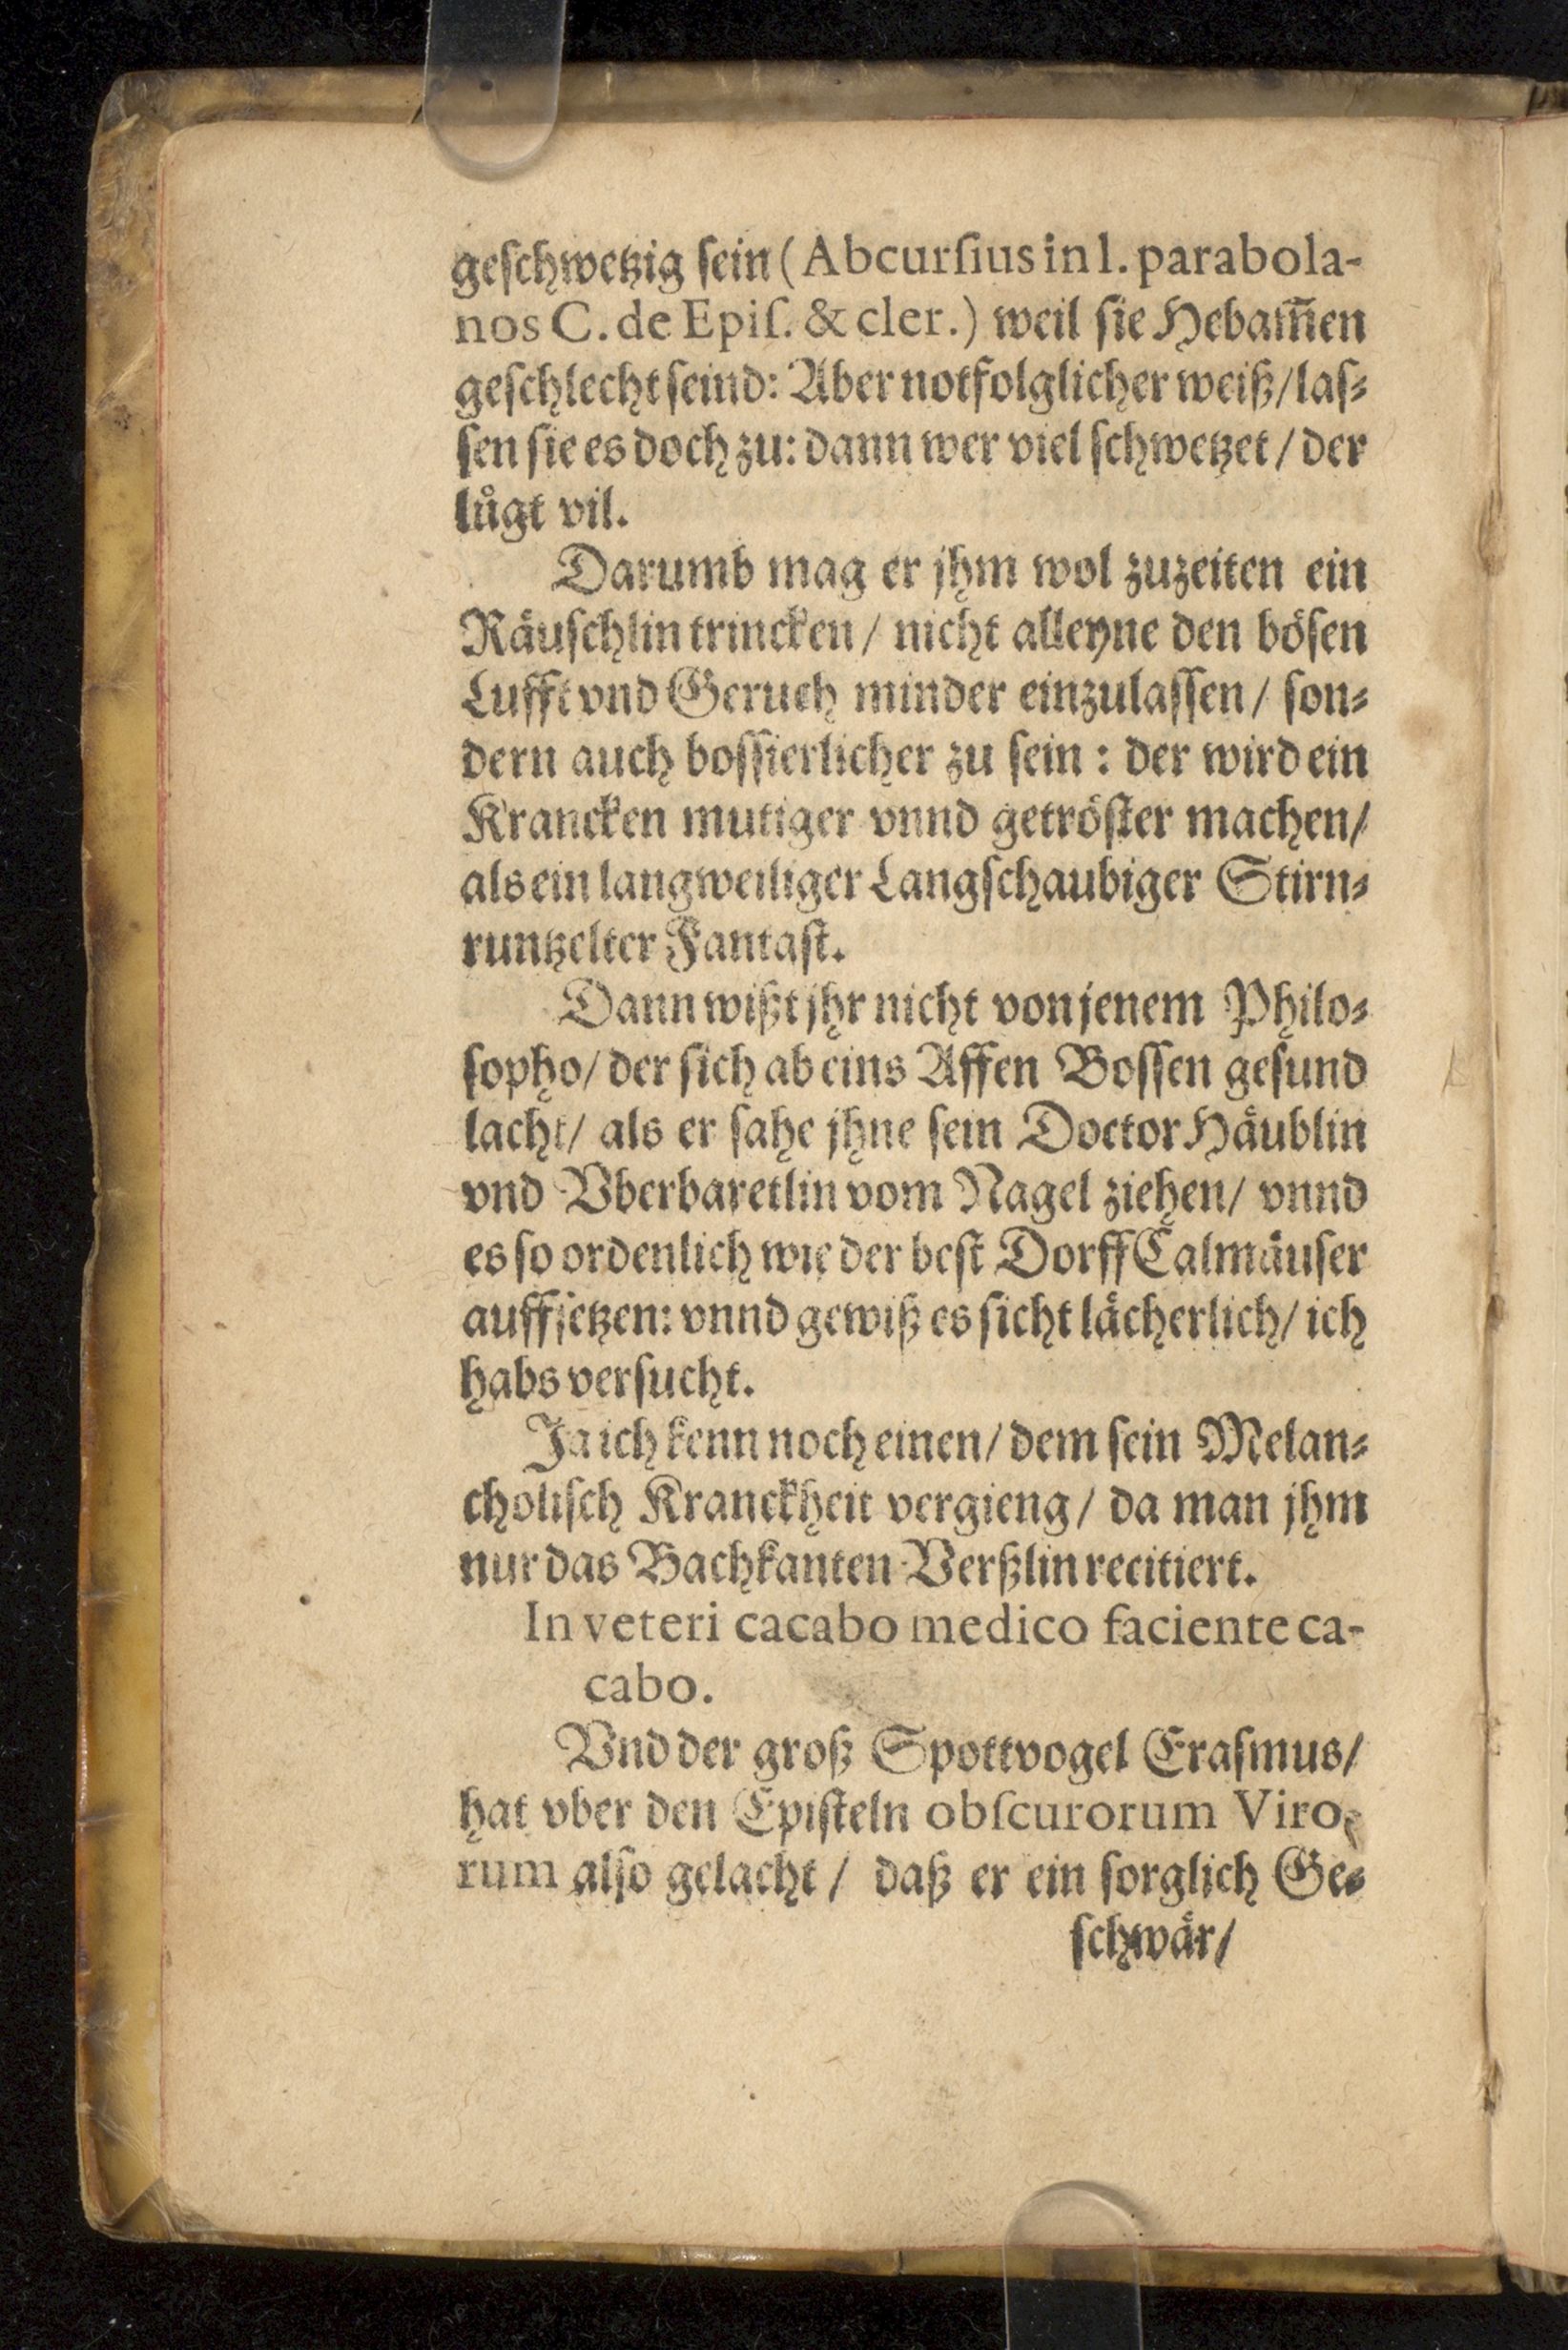 geſchwetzig ſein (Abcurſius in l. parabola-
nos C. de Epiſ. & cler.) weil ſie Hebam̃en
geſchlecht ſeind: Aber notfolglicher weiß/ laſ⸗
ſen ſie es doch zu: dann wer viel ſchwetzet / der
lůgt vil.
Darumb mag er jhm wol zuzeiten ein
Räuſchlin trincken / nicht alleyne den böſen
Lufft vnd Geruch minder einzulaſſen / ſon⸗
dern auch boſſierlicher zu ſein : der wird ein
Krancken mutiger vnnd getröſter machen/
als ein langweiliger Langſchaubiger Stirn⸗
runtzelter Fantaſt.
Dann wißt jhr nicht von jenem Philo⸗
ſopho/ der ſich ab eins Affen Boſſen geſund
lacht/ als er ſahe jhne ſein Doctor Häublin
vnd Vberbaretlin vom Nagel ziehen/ vnnd
es ſo ordenlich wie der beſt Dorff Calmäuſer
auffſetzen: vnnd gewiß es ſicht lächerlich/ ich
habs verſucht.
Ja ich kenn noch einen/ dem ſein Melan⸗
choliſch Kranckheit vergieng / da man jhm
nur das Bachkanten Verßlin recitiert.
In veteri cacabo medico faciente ca-
cabo.
Vnd der groß Spottvogel Eraſmus/
hat vber den Epiſteln obſcurorum Viro-
rum alſo gelacht / daß er ein ſorglich Ge⸗
ſchwär/